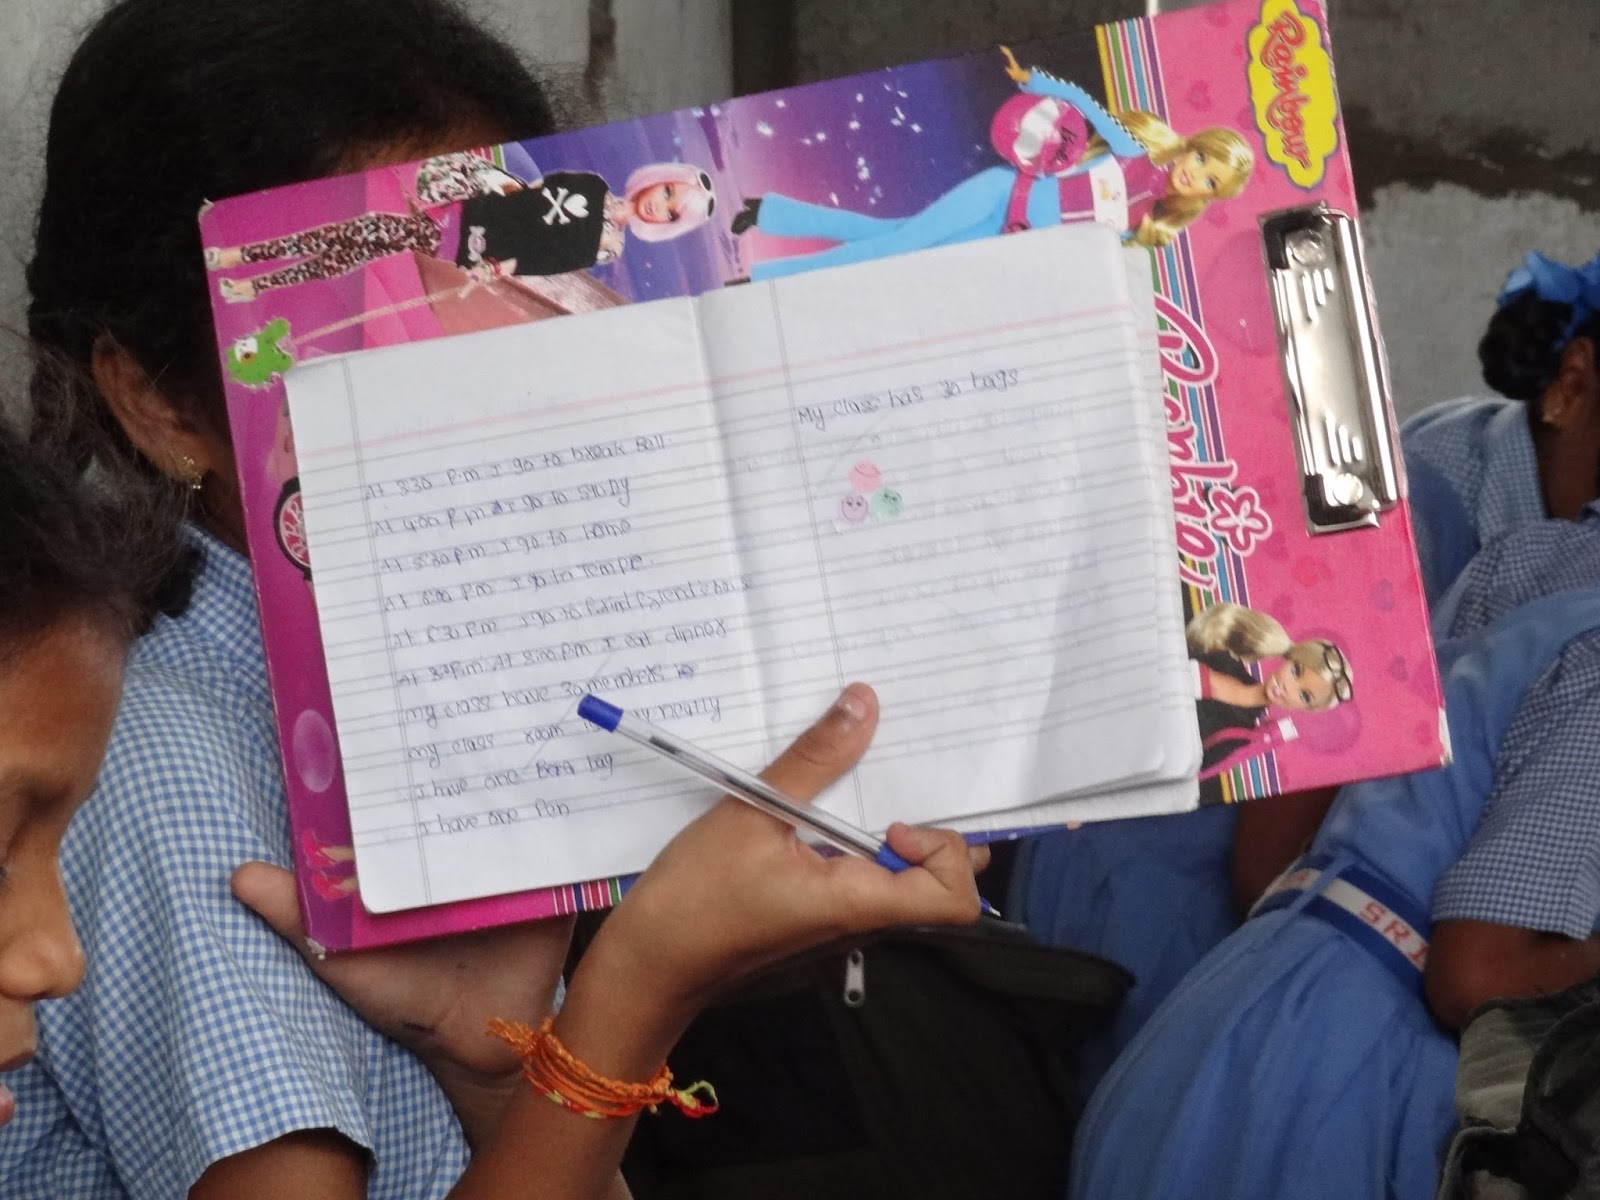 At 3:30 P.m I go to break Bell.
At 4:00 P.m I go to study
At 5:30 P.m I go to home
At 6:00 P.m I go to Temple.
At P.m I go to
At At 8:00 P.m I eat dinner
my class have 30 members
my class room neatly
I have one bag
I have one Pen
My class has 30 bags
Rainbow
SRI